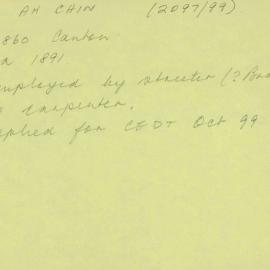 AH CHIN (2097/99)
860 Canton
a 1891
employed by streeter (?
carpenter.
plied for CEDT Oct 99